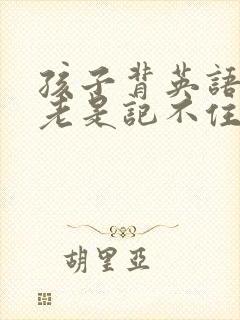 孩子背英語
老是記不住
胡里亞